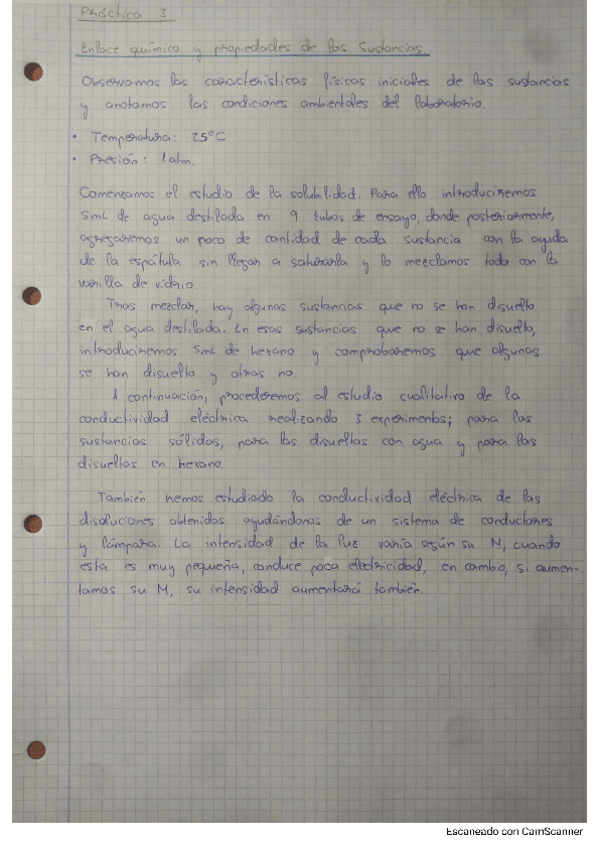 Práctica 3
Enlace químico y propiedades de las sustancias
Observamos las características físicas iniciales de las sustancias
y anotamos las condiciones ambientales del laboratorio.
• Temperatura: 25°C
• Presión: 1 atm.
Comenzamos el estudio de la solubilidad. Para ello introduciremos
5mL de agua destilada en 9 tubos de ensayo, donde posteriormente,
agregaremos un poco de cantidad de cada sustancia con la ayuda
de la espátula sin llegar a saturarla y lo mezclamos todo con la
varilla de vidrio.
Tras mezclar, hay algunas sustancias que no se han disuelto
en el agua destilada. En esas sustancias que no se han disuelto,
introduciremos 5mL de hexano y comprobaremos que algunas
se han disuelto y otras no.
A continuación, procederemos al estudio cualitativo de la
conductividad eléctrica realizando 3 experimentos; para las
sustancias sólidas, para las disueltas con agua y para las
disueltas en hexano.
También hemos estudiado la conductividad eléctrica de las
disoluciones obtenidas ayudándonos de un sistema de conductores
y lámpara. La intensidad de la luz varía según su M, cuando
esta es muy pequeña, conduce poca electricidad, en cambio, si aumen-
tamos su M, su intensidad aumentará también.
Escaneado con CamScanner